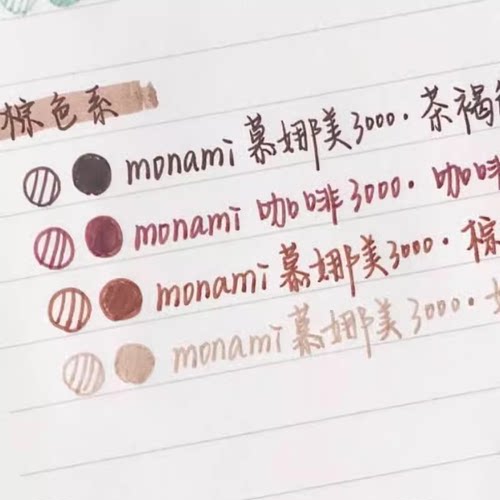 棕色系
monami 慕娜美3000·茶褐
monami 咖啡3000·咖啡
monami 慕娜美3000·棕
monami 慕娜美3000·